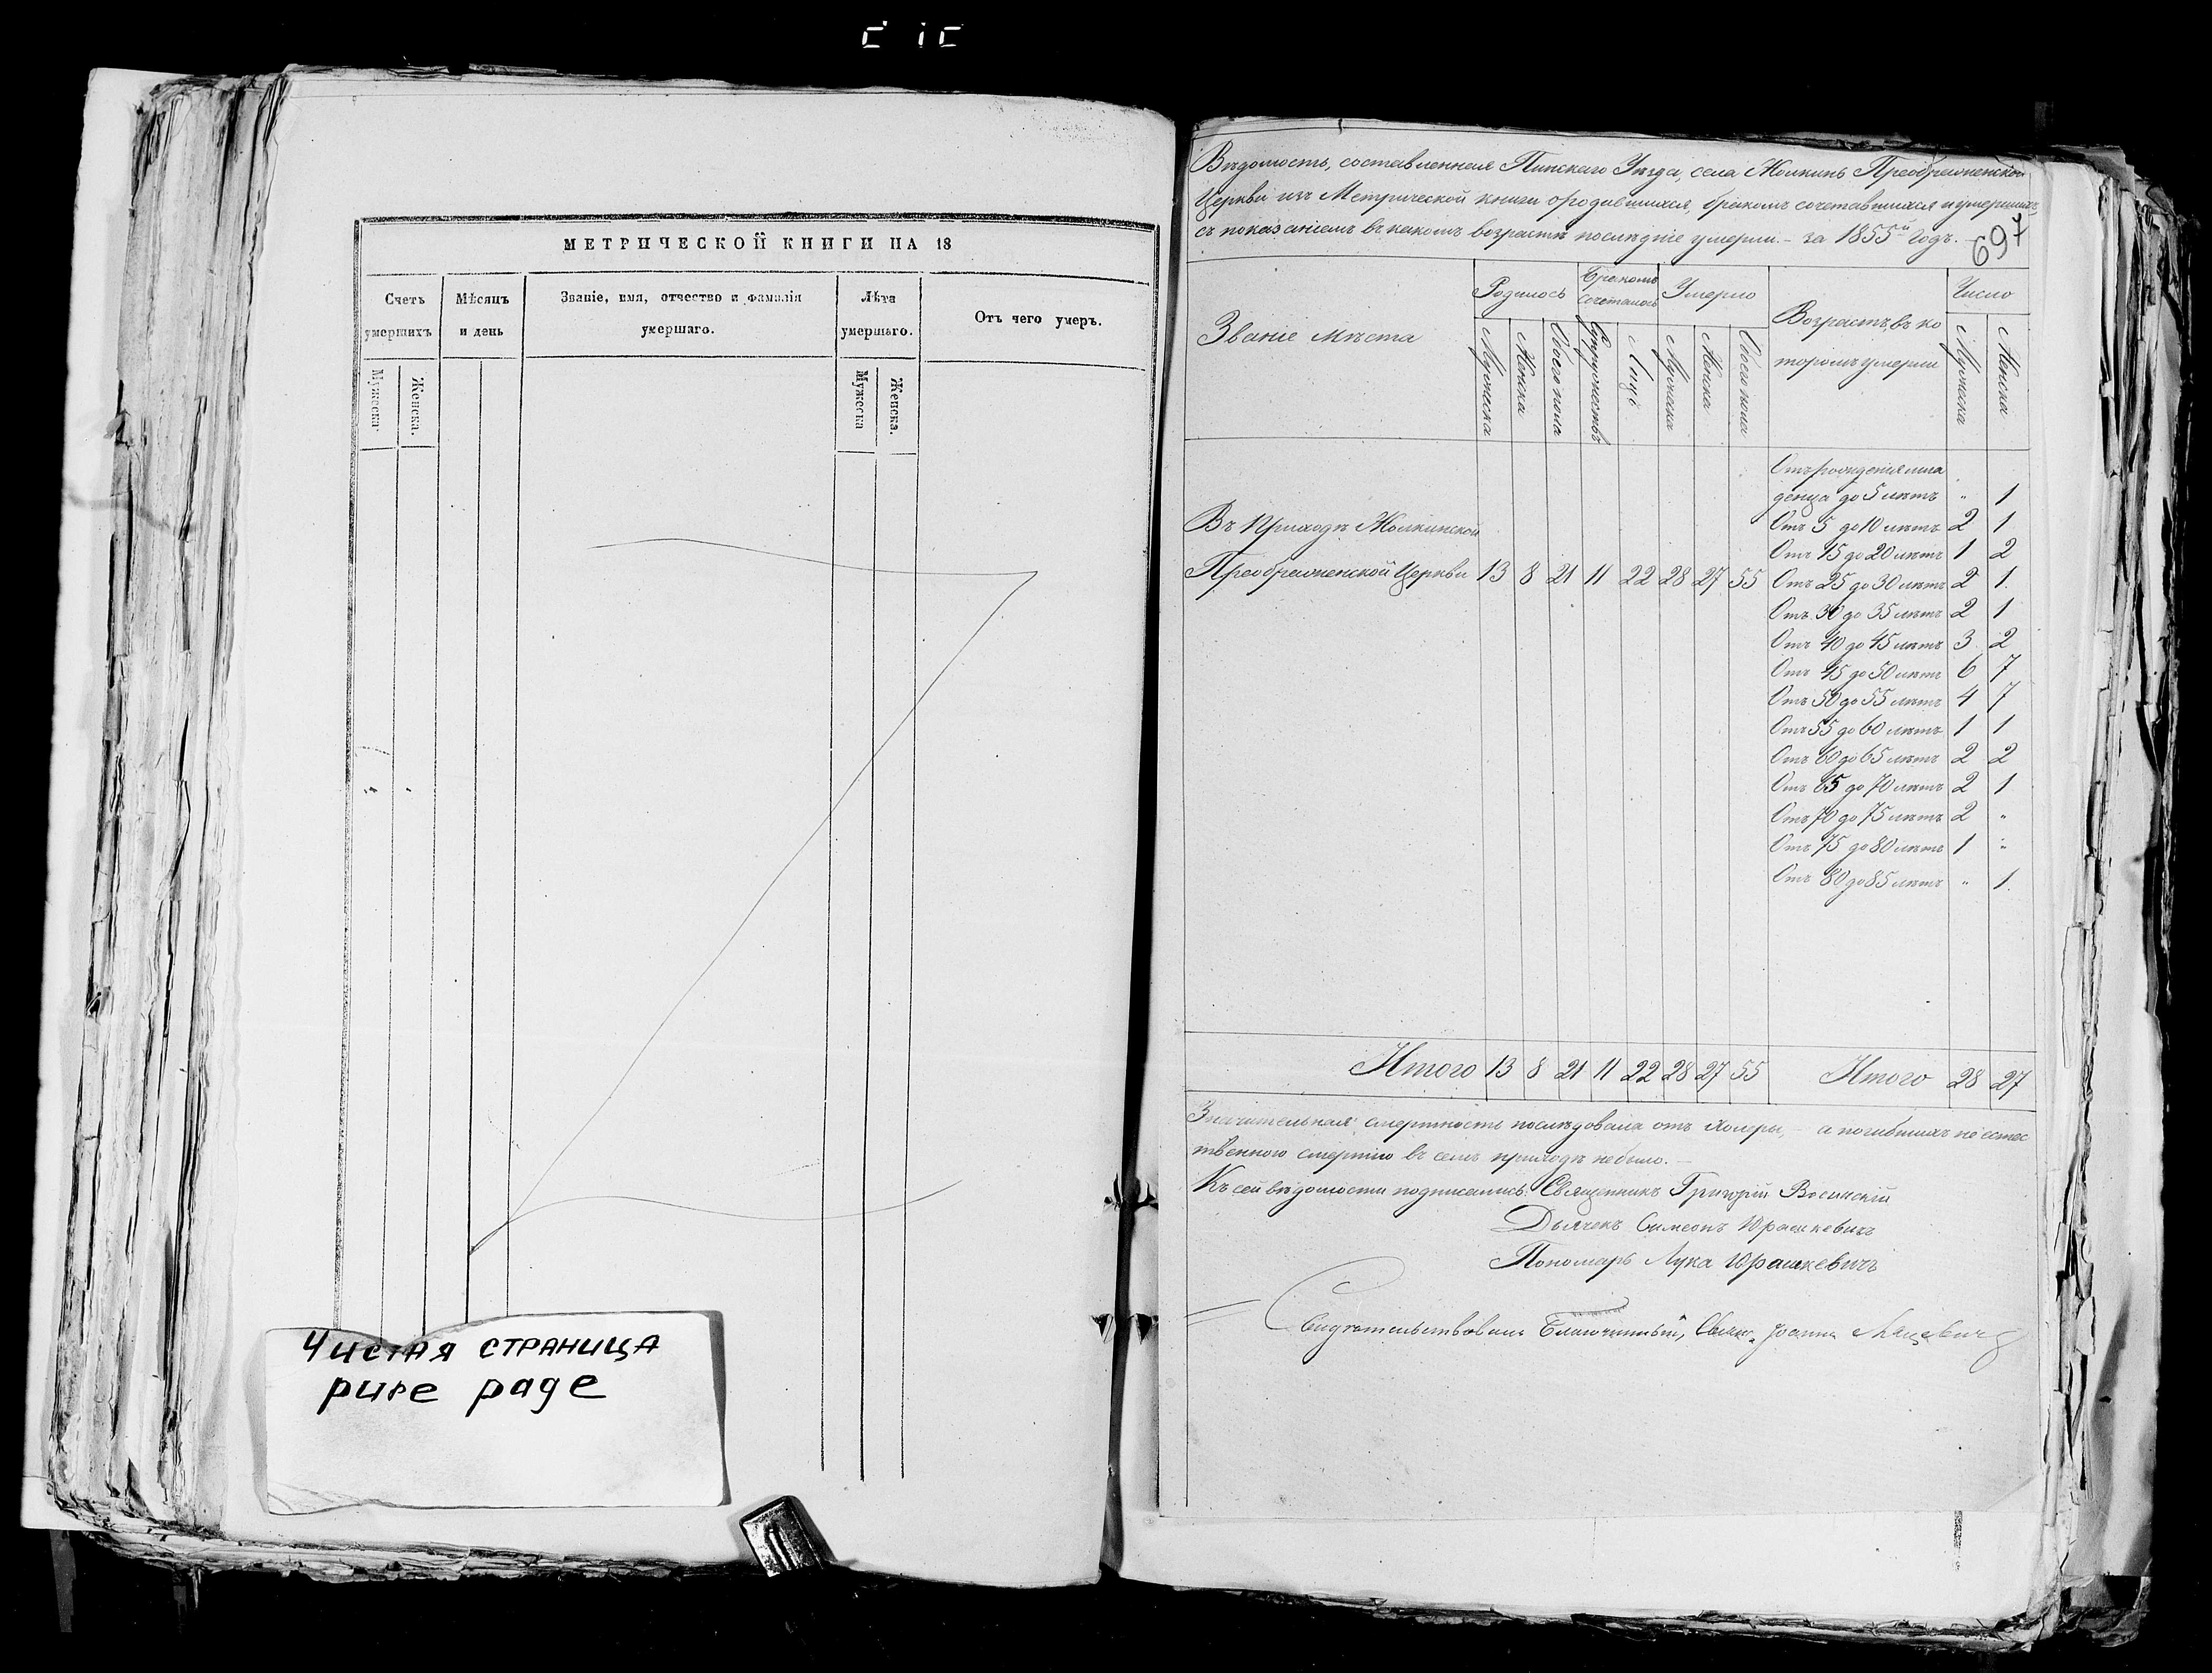 МЕТРИЧЕСКОЙ КНИГИ НА 18
Счетъ умершихъ
Мѣсяцъ и день
Званіе, имя, отчество и фамилія умершаго.
Лѣта умершаго.
Отъ чего умеръ.
Мужеска
Женска.
Мужеска
Женска.
Чистая страница
pure page
Вѣдомость, составленная Пинскаго Уѣзда, села Жолкинь Преображенской
Церкви изъ Метрической книги о родившихся, бракомъ сочетавшихся и умершихъ,
съ показаніемъ въ какомъ возрастѣ послѣдніе умерли. – за 1855й Годъ. –
697
Званіе мѣста
Родилось
Бракомъ сочеталось
Умерло
Возрастъ, въ ко
торомъ умерли
Число
Мужеска
Женска
Обоего пола
Супружествъ
Лицъ
Мужеска
Женска
Обоего пола
Мужеска
Женска
Отъ рожденія мла
денца до 5 лѣтъ " 1
Въ Приходѣ Жолкинской
Отъ 5 до 10 лѣтъ 2 1
Отъ 15 до 20 лѣтъ 1 2
Преображенской Церкви 13 8 21 11 22 28 27 55 Отъ 25 до 30 лѣтъ 2 1.
Отъ 30 до 35 лѣтъ 2 1
Отъ 40 до 45 лѣтъ 3 2
Отъ 45 до 50 лѣтъ 6 7
Отъ 50 до 55 лѣтъ 4 7
Отъ 55 до 60 лѣтъ 1 1
Отъ 60 до 65 лѣтъ 2 2
Отъ 65 до 70 лѣтъ 2 1
Отъ 70 до 75 лѣтъ 2 "
Отъ 75 до 80 лѣтъ 1 "
Отъ 80 до 85 лѣтъ " 1.
Итого 13 8 21 11 22 28 27 55 Итого 28 27
Значительная смертность послѣдовала отъ холеры, – а погибшихъ не естес
твенною смертію въ семъ приходѣ небыло. –
Къ сей вѣдомости подписались: Священникъ Григорій
Дьячекъ Симеонъ Юрашкевичъ
Пономарь Лука Юрашкевичъ
Свидѣтельствовалъ Благочинный, Свящ. Іоаннъ